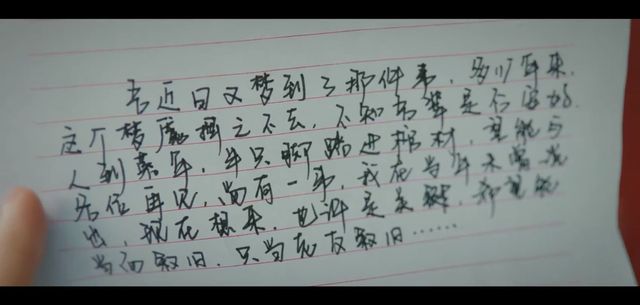 吾近日又梦到了那件事，多少年来，
这个梦魇挥之不去，不知书萍是否安好，
人到暮年，半只脚踏进棺材，望能与
各位再见，尚有一事，我在当年未曾说
出，现在想来，也许是关键，却望能
当面叙旧，只当老友叙旧……